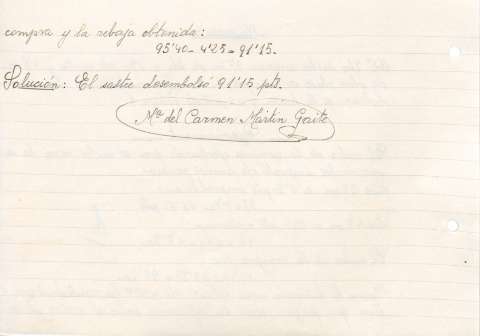 compra y la rebaja obtenida:
95'40 - 4'25 = 91'15.
Solución: El sastre desembolsó 91'15 pts.
Mª del Carmen Martín Gaite